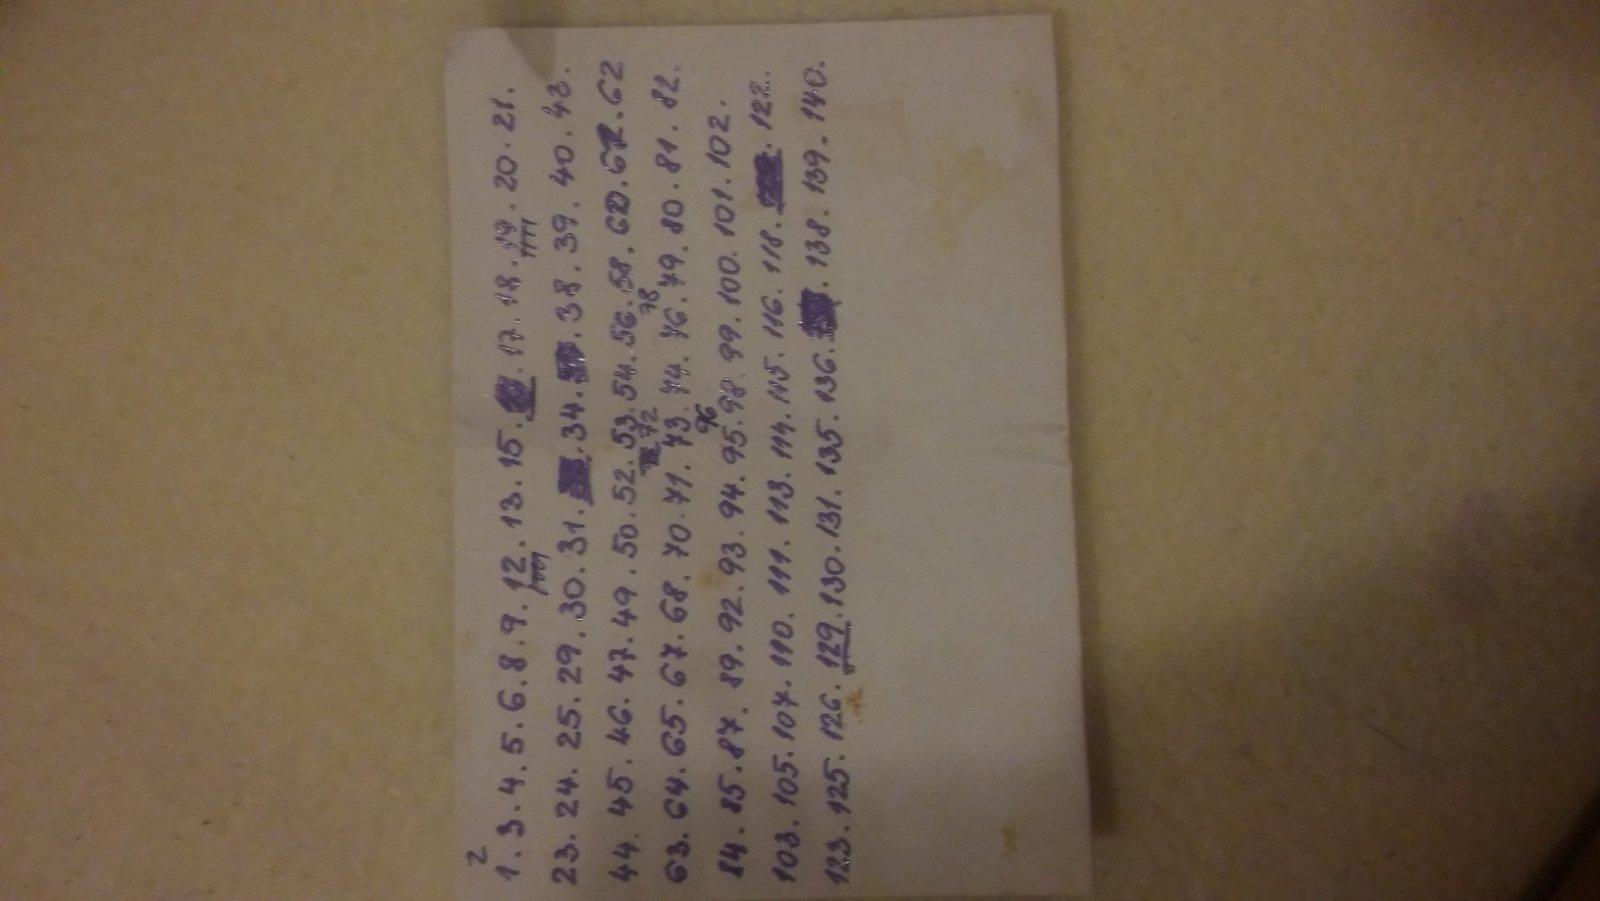 2
1.3.4.5.6.8.9.12.13.15. .17.18.19.20.21.
23.24.25.29.30.31. .34. .38.39.40.43.
44.45.46.47.49.50.52.53.54.56.58.60.61.62
72 78
63.64.65.67.68.70.71.73.74.76.79.80.81.82.
96
84.85.87.89.92.93.94.95.98.99.100.101.102.
103.105.107.110.111.113.114.115.116.118. .122.
123.125.126.129.130.131.135.136. .138.139.140.